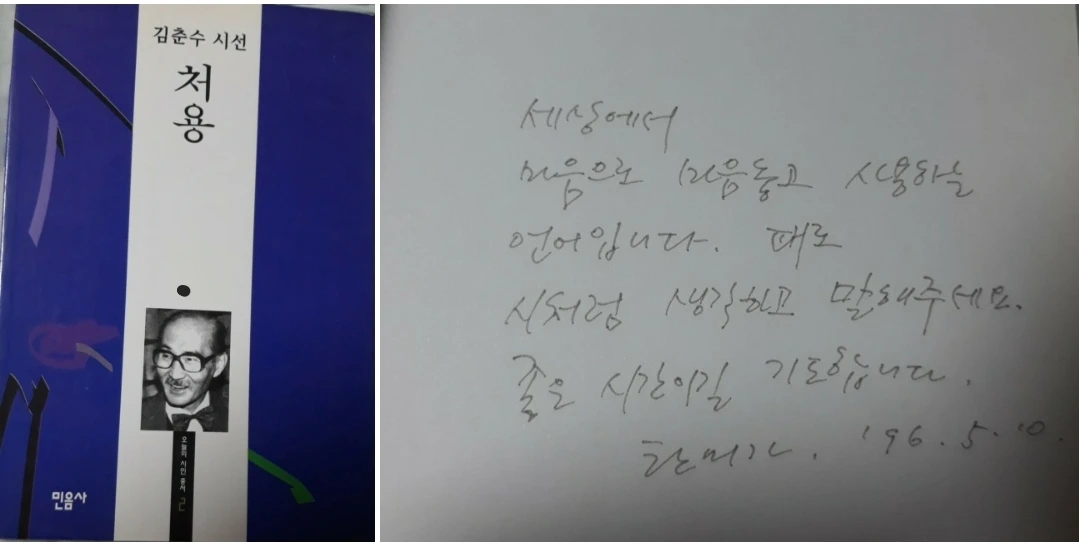 김춘수 시선
처용
오늘의 시인 총서 2
민음사
세상에서
마음으로 마음놓고 사용하는
언어입니다. 때로
시처럼 생각하고 말해주세요.
좋은 시간이길 기도합니다.
'96. 5. 10.